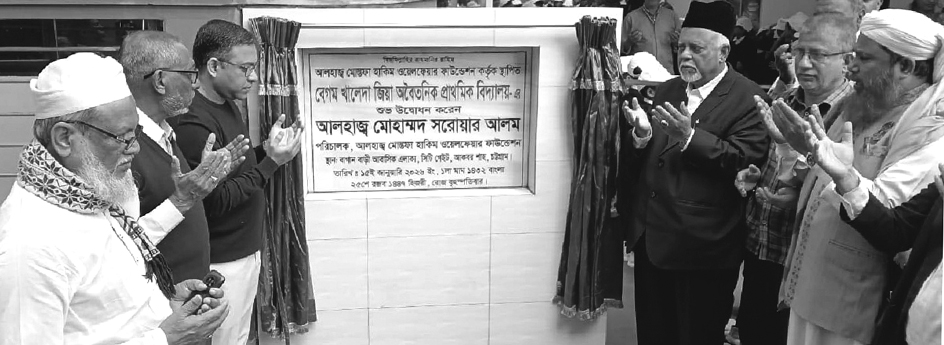 বিসমিল্লাহির রাহমানির রাহিম
আলহাজ্ব মোস্তফা হাকিম ওয়েলফেয়ার ফাউন্ডেশন কর্তৃক স্থাপিত
বেগম খালেদা জিয়া অবৈতনিক প্রাথমিক বিদ্যালয়-এ
শুভ উদ্বোধন করেন
আলহাজ্ব মোহাম্মদ সরোয়ার আলম
পরিচালক, আলহাজ্ব মোস্তফা হাকিম ওয়েলফেয়ার ফাউন্ডেশন
স্থান: বাগান বাড়ী আবাসিক এলাকা, সিটি গেইট, আকবর শাহ, চট্টগ্রাম।
তারিখ ঃ ১৫ই জানুয়ারি ২০২৬ ইং, ১লা মাঘ ১৪৩২ বাংলা
২৫শে রজব ১৪৪৭ হিজরী, রোজ বৃহস্পতিবার।